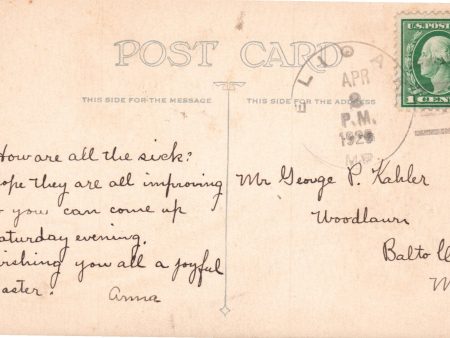 POST CARD
THIS SIDE FOR THE MESSAGE
THIS SIDE FOR THE ADDRESS
ELIOAK
APR
P.M.
U.S. POSTAGE
1 CENT
How are all the sick?
ope they are all improving
you can come up
aturday evening.
ishing you all a joyful
aster. Anna
Mr George P. Kahler
Woodlawn
Balto
M